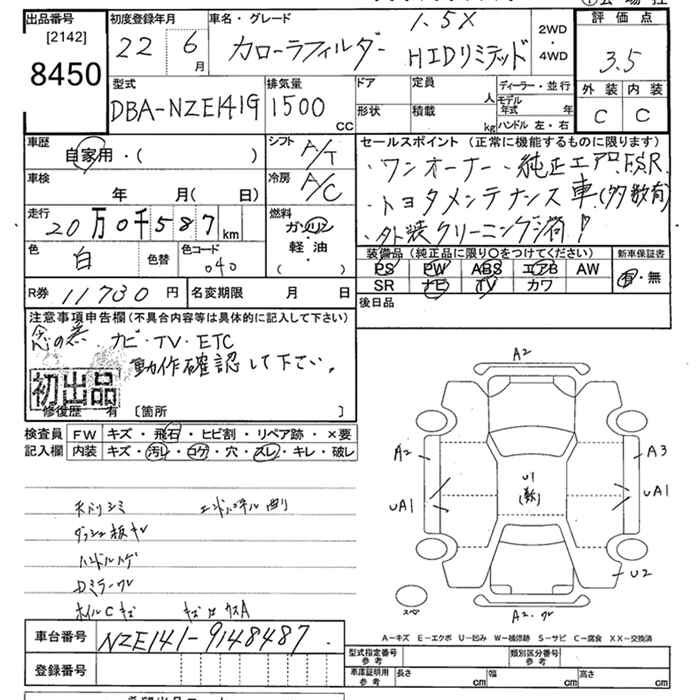 出品番号
[2142]
8450
初度登録年月
22 6 月
車名・グレード
カローラフィルダー
1.5X
HIDリミテッド
2WD
・
4WD
評価点
3.5
外装 内装
C C
型式
DBA-NZE141G
排気量
1500
CC
ドア
形状
定員
人
積載
kg
ディーラー・並行
モデル年式 年
ハンドル 左・右
車歴
自家用・( )
シフト
A/T
車検
年 月( 日)
冷房
A/C
走行
20万0千587km
燃料
ガソリン
軽・油
( )
色
白
色替
色コード
040
R券 11730円
名変期限 月 日
セールスポイント (正常に機能するものに限ります)
・ワンオーナー・純正エアロF.S.R
・トヨタメンテナンス車(多数有)
・外装クリーニング済!
装備品 (純正品に限り〇をつけてください)
新車保証書
PS PW ABS エアB AW
SR ナビ TV カワ
有・無
後日品
注意事項申告欄 (不具合内容等は具体的に記入して下さい)
念の為 ナビ・TV・ETC
動作確認して下さい。
初出品
修復歴 有 [箇所 ]
検査員 FW キズ・飛石・ヒビ割・リペア跡・×要
記入欄 内装 キズ・汚レ・コゲ・穴・スレ・キレ・破レ
ダッシュ板
ハンドル
Dミラー
A2
A2
A3
UA1
U1
UA1
U2
A2
スペア
A-キズ E-エクボ U-凹み W-補修跡 S-サビ C-腐食 XX-交換済
車台番号 NZE141-9148487.
登録番号
型式指定番号
参考
類別区分番号
参考
車庫証明用
参考
長さ cm
幅 cm
高さ cm